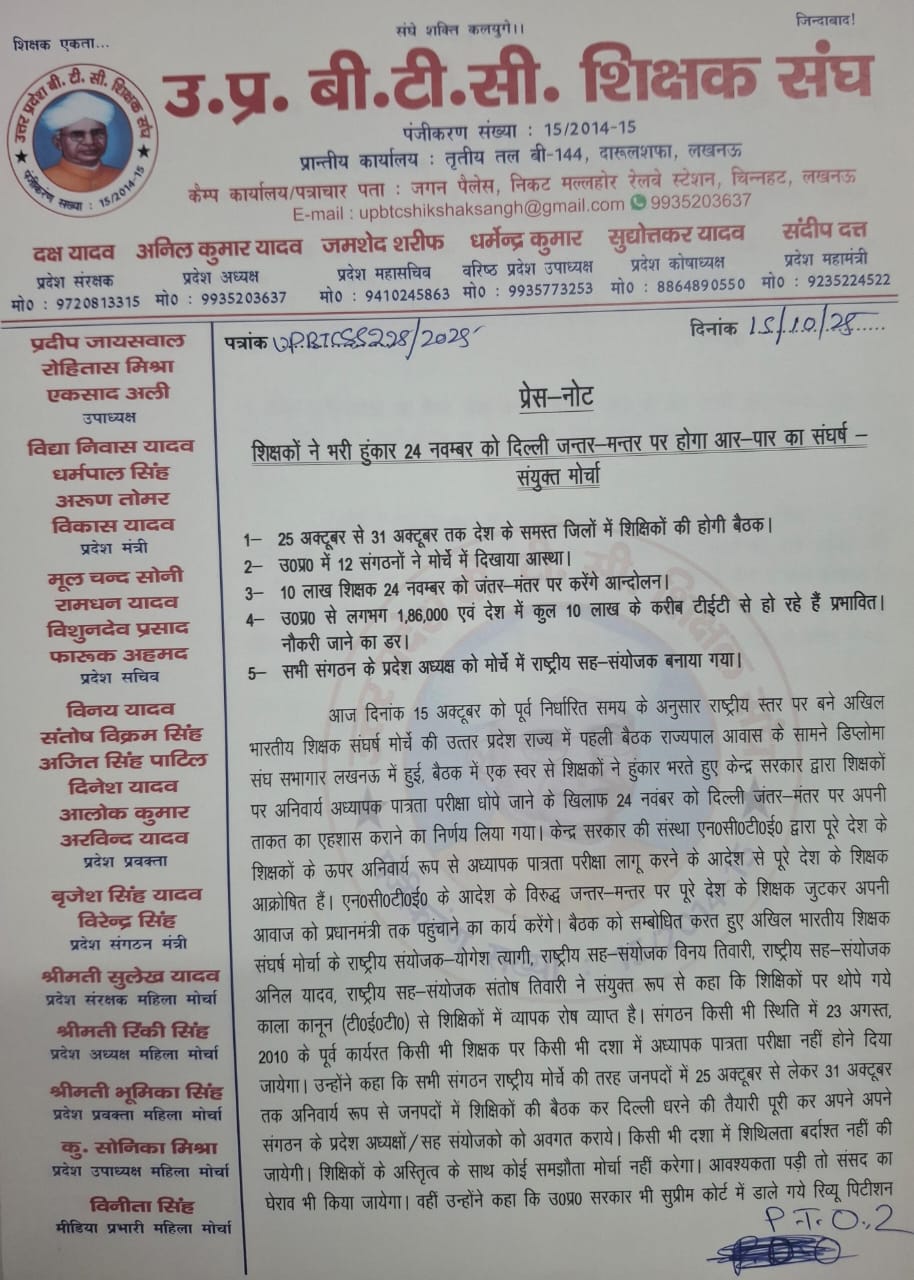 शिक्षक एकता...
संघे शक्ति कलयुगे।।
जिन्दाबाद!
उत्तर प्रदेश बी. टी. सी. शिक्षक संघ
पंजीकरण संख्या : 15/2014-15
उ.प्र. बी.टी.सी. शिक्षक संघ
पंजीकरण संख्या : 15/2014-15
प्रान्तीय कार्यालय : तृतीय तल बी-144, दारूलशफा, लखनऊ
कैम्प कार्यालय/पत्राचार पता : जगन पैलेस, निकट मल्हौर रेलवे स्टेशन, चिनहट, लखनऊ
E-mail : upbtcshikshaksangh@gmail.com 9935203637
दक्ष यादव अनिल कुमार यादव जमशेद शरीफ धर्मेन्द्र कुमार सुद्योत्तकर यादव संदीप दत्त
प्रदेश संरक्षक प्रदेश अध्यक्ष प्रदेश महासचिव वरिष्ठ प्रदेश उपाध्यक्ष प्रदेश कोषाध्यक्ष प्रदेश महामंत्री
मो0 : 9720813315 मो0 : 9935203637 मो0 : 9410245863 मो0 : 9935773253 मो0 : 8864890550 मो0 : 9235224522
प्रदीप जायसवाल
रोहितास मिश्रा
एकसाद अली
उपाध्यक्ष
विद्या निवास यादव
धर्मपाल सिंह
अरूण तोमर
विकास यादव
प्रदेश मंत्री
मूल चन्द सोनी
रामधन यादव
विशुनदेव प्रसाद
फारूक अहमद
प्रदेश सचिव
विनय यादव
संतोष विक्रम सिंह
अजित सिंह पाटिल
दिनेश यादव
आलोक कुमार
अरविन्द यादव
प्रदेश प्रवक्ता
बृजेश सिंह यादव
विरेन्द्र सिंह
प्रदेश संगठन मंत्री
श्रीमती सुलेख यादव
प्रदेश संरक्षक महिला मोर्चा
श्रीमती रिंकी सिंह
प्रदेश अध्यक्ष महिला मोर्चा
श्रीमती भूमिका सिंह
प्रदेश प्रवक्ता महिला मोर्चा
कु. सोनिका मिश्रा
प्रदेश उपाध्यक्ष महिला मोर्चा
विनीता सिंह
मीडिया प्रभारी महिला मोर्चा
पत्रांक UPBTCSS228/2025
दिनांक 15/10/25
प्रेस–नोट
शिक्षकों ने भरी हुंकार 24 नवम्बर को दिल्ली जन्तर–मन्तर पर होगा आर–पार का संघर्ष –
संयुक्त मोर्चा
1– 25 अक्टूबर से 31 अक्टूबर तक देश के समस्त जिलों में शिक्षिकों की होगी बैठक।
2– उ0प्र0 में 12 संगठनों ने मोर्चे में दिखाया आस्था।
3– 10 लाख शिक्षक 24 नवम्बर को जंतर–मंतर पर करेंगे आन्दोलन।
4– उ0प्र0 से लगभग 1,86,000 एवं देश में कुल 10 लाख के करीब टीईटी से हो रहे हैं प्रभावित।
नौकरी जाने का डर।
5– सभी संगठन के प्रदेश अध्यक्ष को मोर्चे में राष्ट्रीय सह–संयोजक बनाया गया।
आज दिनांक 15 अक्टूबर को पूर्व निर्धारित समय के अनुसार राष्ट्रीय स्तर पर बने अखिल
भारतीय शिक्षक संघर्ष मोर्चे की उत्तर प्रदेश राज्य में पहली बैठक राज्यपाल आवास के सामने डिप्लोमा
संघ सभागार लखनऊ में हुई, बैठक में एक स्वर से शिक्षकों ने हुंकार भरते हुए केन्द्र सरकार द्वारा शिक्षकों
पर अनिवार्य अध्यापक पात्रता परीक्षा धोपे जाने के खिलाफ 24 नवंबर को दिल्ली जंतर–मंतर पर अपनी
ताकत का एहशास कराने का निर्णय लिया गया। केन्द्र सरकार की संस्था एन0सी0टी0ई0 द्वारा पूरे देश के
शिक्षकों के ऊपर अनिवार्य रूप से अध्यापक पात्रता परीक्षा लागू करने के आदेश से पूरे देश के शिक्षक
आक्रोषित हैं। एन0सी0टी0ई0 के आदेश के विरुद्ध जन्तर–मन्तर पर पूरे देश के शिक्षक जुटकर अपनी
आवाज को प्रधानमंत्री तक पहुंचाने का कार्य करेंगे। बैठक को सम्बोधित करत हुए अखिल भारतीय शिक्षक
संघर्ष मोर्चा के राष्ट्रीय संयोजक–योगेश त्यागी, राष्ट्रीय सह–संयोजक विनय तिवारी, राष्ट्रीय सह–संयोजक
अनिल यादव, राष्ट्रीय सह–संयोजक संतोष तिवारी ने संयुक्त रूप से कहा कि शिक्षिकों पर थोपे गये
काला कानून (टी0ई0टी0) से शिक्षिकों में व्यापक रोष व्याप्त है। संगठन किसी भी स्थिति में 23 अगस्त,
2010 के पूर्व कार्यरत किसी भी शिक्षक पर किसी भी दशा में अध्यापक पात्रता परीक्षा नहीं होने दिया
जायेगा। उन्होंने कहा कि सभी संगठन राष्ट्रीय मोर्चे की तरह जनपदों में 25 अक्टूबर से लेकर 31 अक्टूबर
तक अनिवार्य रूप से जनपदों में शिक्षिकों की बैठक कर दिल्ली धरने की तैयारी पूरी कर अपने अपने
संगठन के प्रदेश अध्यक्षों/सह संयोजको को अवगत कराये। किसी भी दशा में शिथिलता बर्दाश्त नहीं की
जायेगी। शिक्षिकों के अस्तित्व के साथ कोई समझौता मोर्चा नहीं करेगा। आवश्यकता पड़ी तो संसद का
घेराव भी किया जायेगा। वहीं उन्होंने कहा कि उ0प्र0 सरकार भी सुप्रीम कोर्ट में डाले गये रिव्यू पिटीशन
P.T.O.2